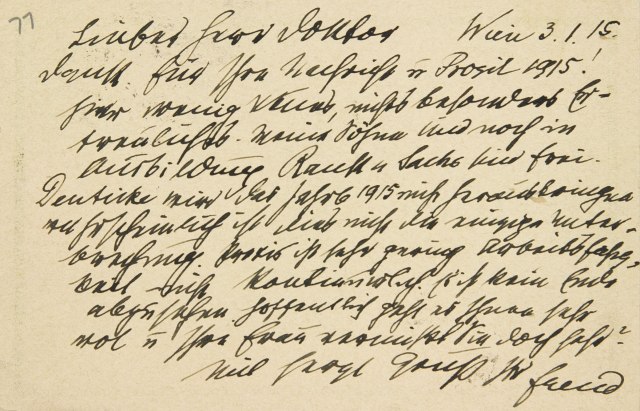 77
Lieber Herr Doktor Wien 3.1.15.
Dank für Ihre Nachricht u Prosit 1915!
hier wenig Neues, nichts besonders Er-
freuliches. Meine Söhne sind noch in
Ausbildung, Rank u Sachs sind frei.
Deuticke wird das Jahrb 1915 nicht herausbringen
wahrscheinlich ist dies nicht die einzige Unter-
brechung. Praxis ist sehr gering Arbeitsfähig-
keit nicht kontinuirlich. Es ist kein Ende
abzusehen. Hoffentlich geht es Ihnen sehr
wol u Ihre Frau vermißt Sie doch sehr?
Mit herzl Gruß Ihr Freud